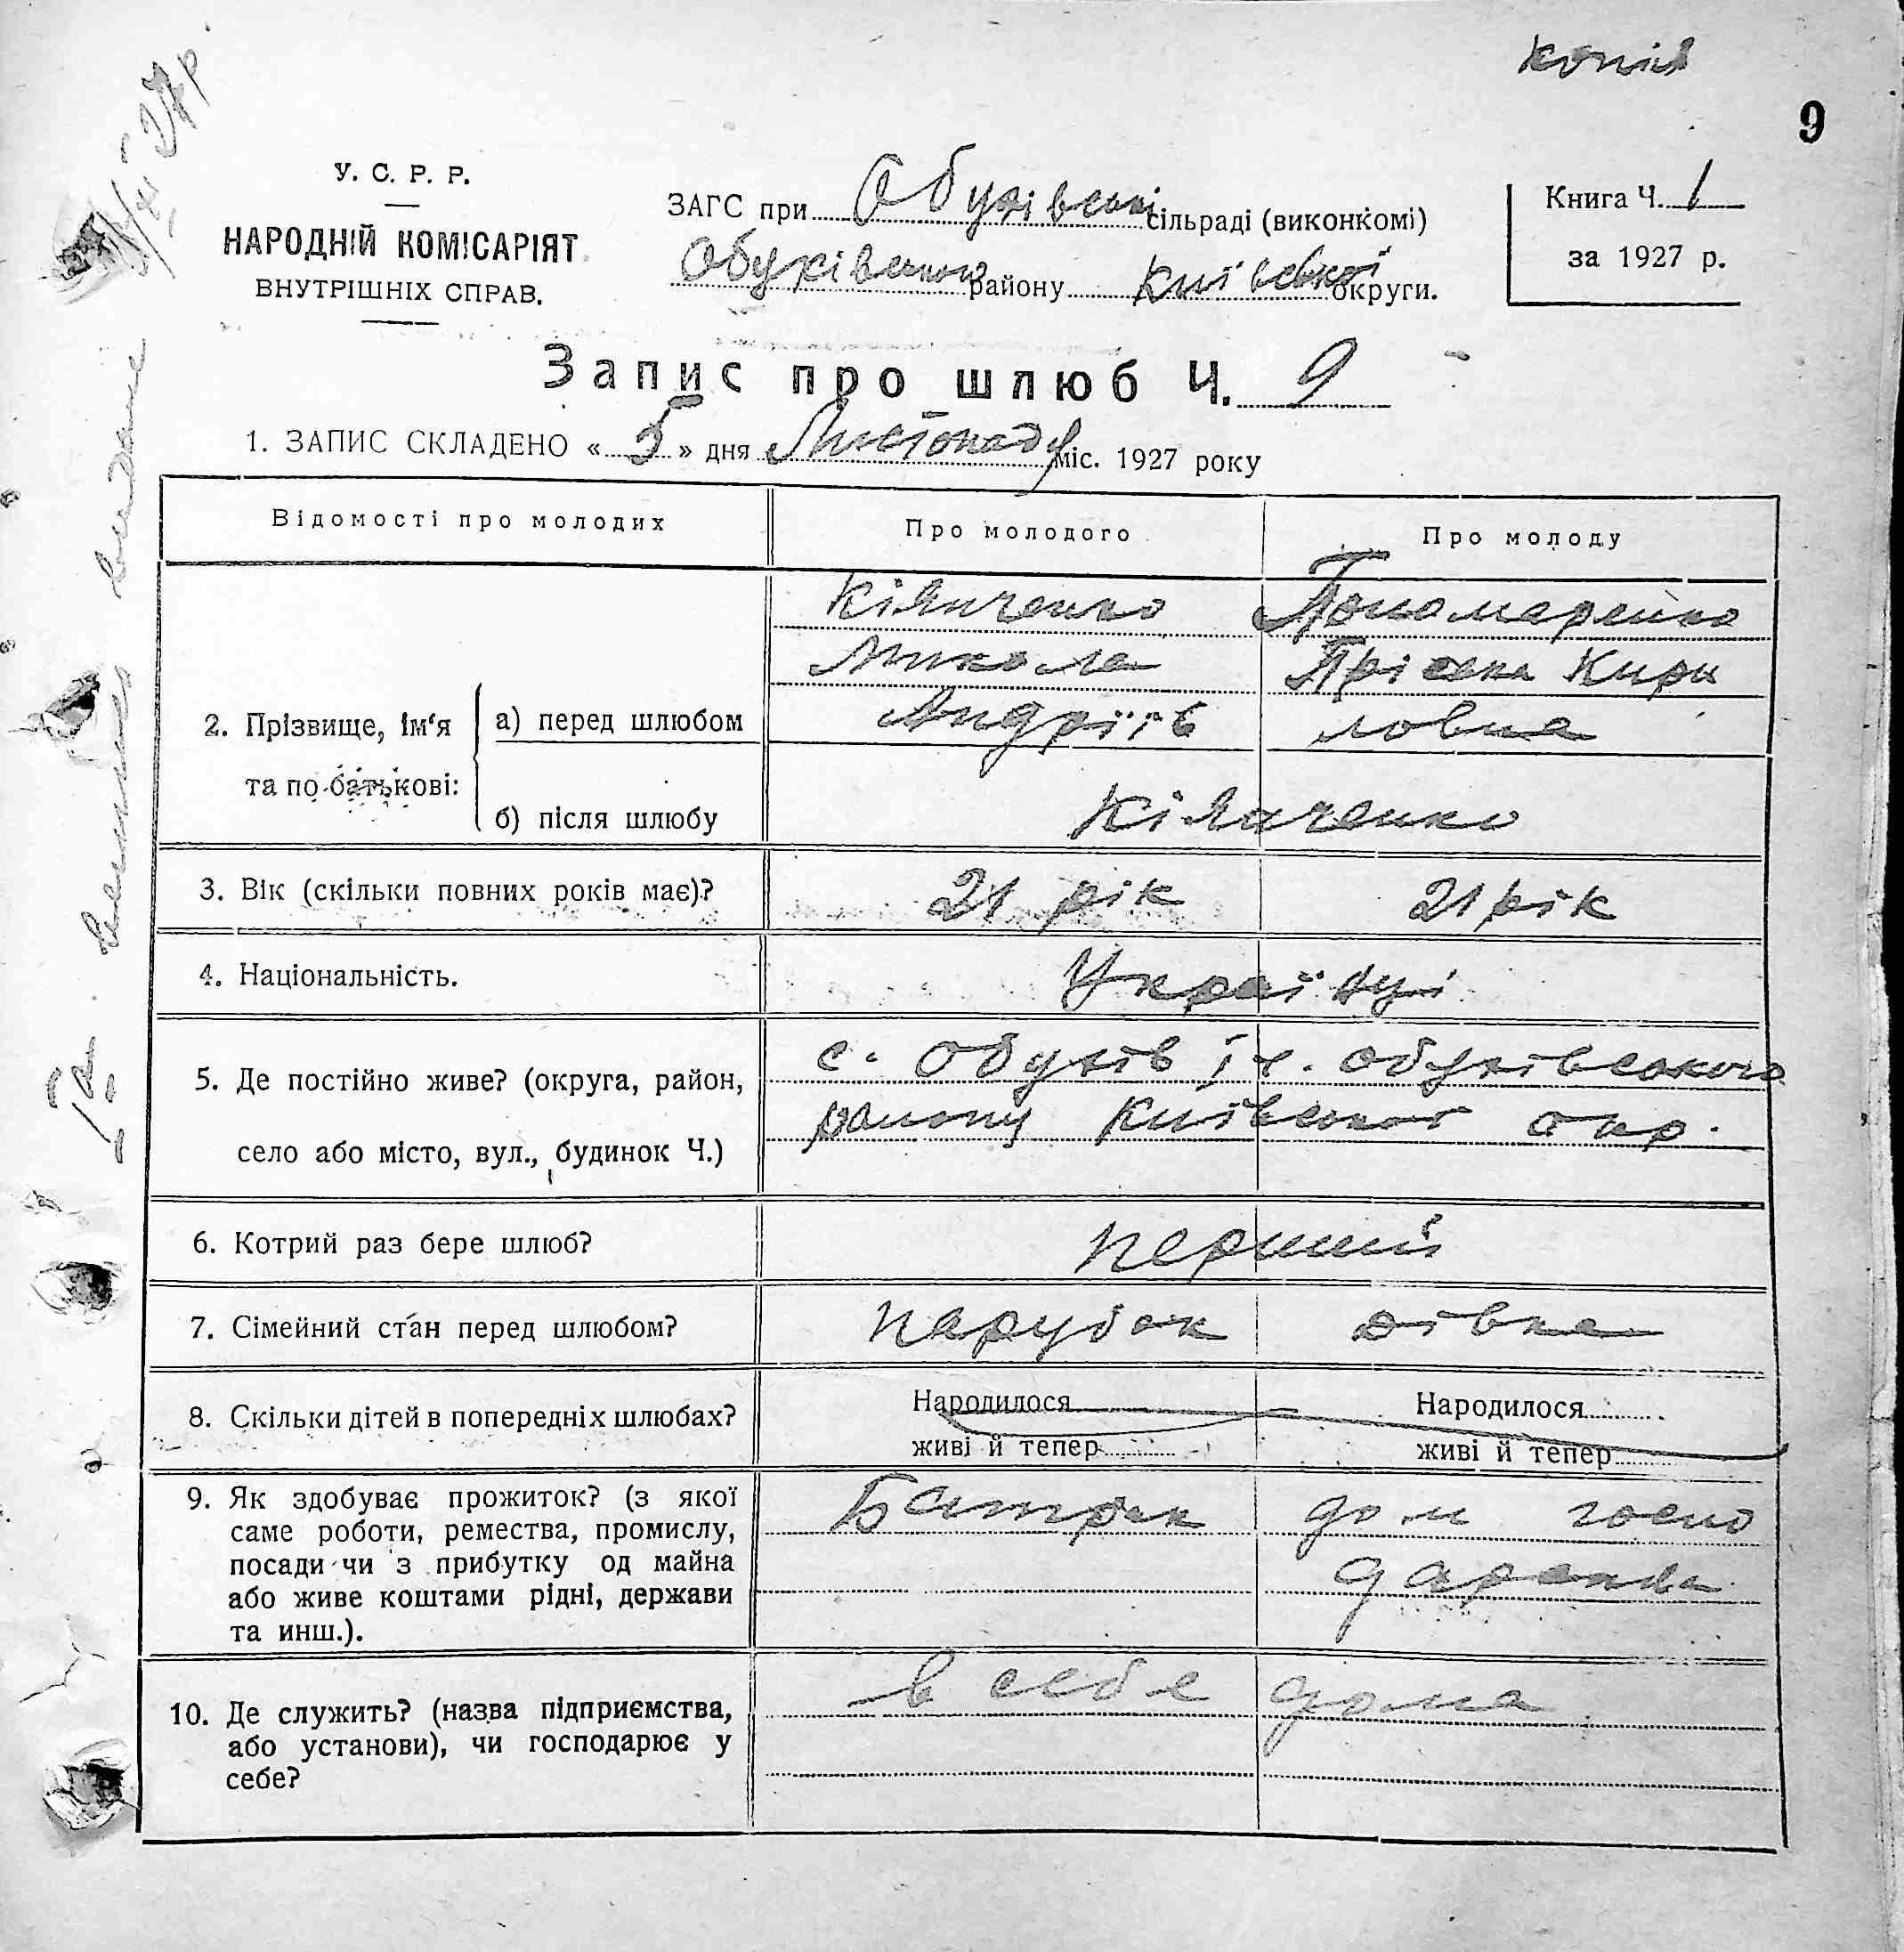 копія
9
У. С. Р. Р.
НАРОДНІЙ КОМІСАРІЯТ
ВНУТРІШНІХ СПРАВ.
ЗАГС при Обухівській сільраді (виконкомі)
Обухівського району Київської округи.
Книга Ч. 1
за 1927 р.
Запис про шлюб Ч. 9
1. ЗАПИС СКЛАДЕНО « 5 » дня Листопаду міс. 1927 року
Відомості про молодих Про молодого Про молоду
2. Прізвище, ім‘я та по батькові:
а) перед шлюбом
Кіянченко Пономаренко
Микола Пріська Кири
Андріїв ловна
б) після шлюбу Кіянченко
3. Вік (скільки повних років має)? 21 рік 21 рік
4. Національність. Українці
5. Де постійно живе? (округа, район,
село або місто, вул., будинок Ч.)
с. Обухів Обухівського
району Київської окр.
6. Котрий раз бере шлюб? перший
7. Сімейний стан перед шлюбом? парубок дівка
8. Скільки дітей в попередніх шлюбах?
Народилося Народилося
живі й тепер живі й тепер
9. Як здобуває прожиток? (з якої
саме роботи, ремества, промислу,
посади чи з прибутку од майна
або живе коштами рідні, держави
та инш.).
Батрак дом госпо
дарка
10. Де служить? (назва підприємства,
або установи), чи господарює у
себе?
в себе дома
27р.